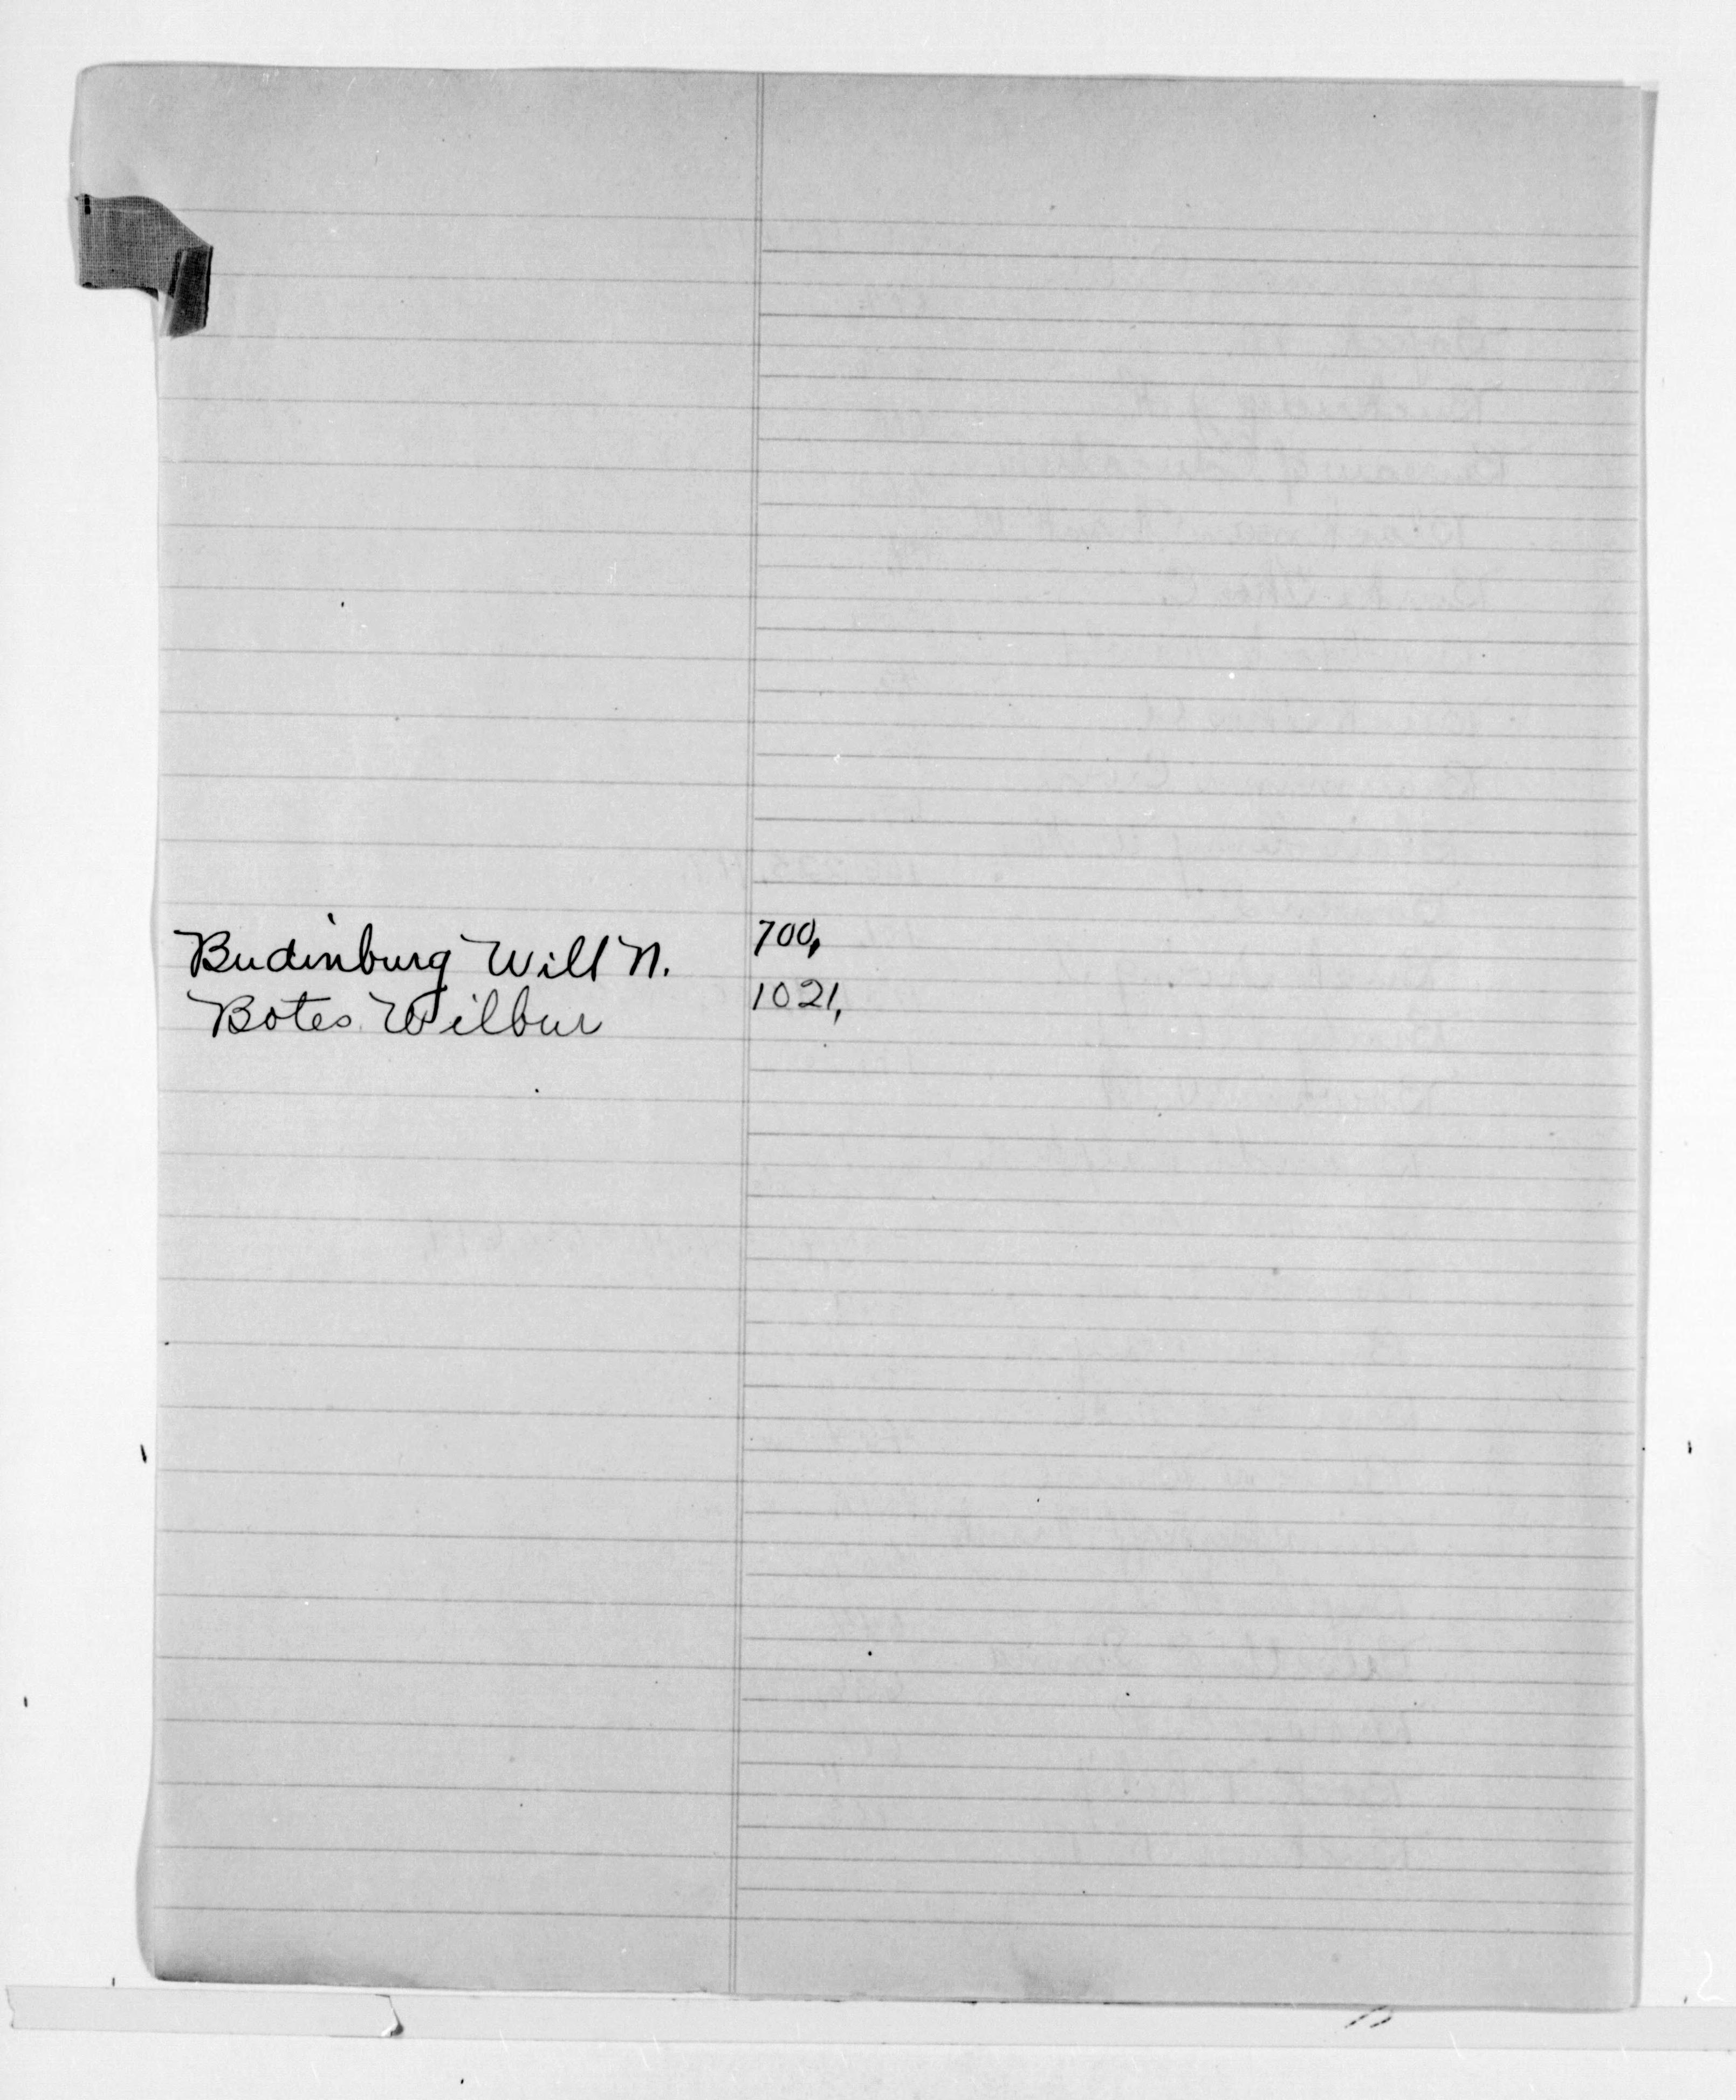 Budinburg Will N. 700,
Botes Wilbur 1021,